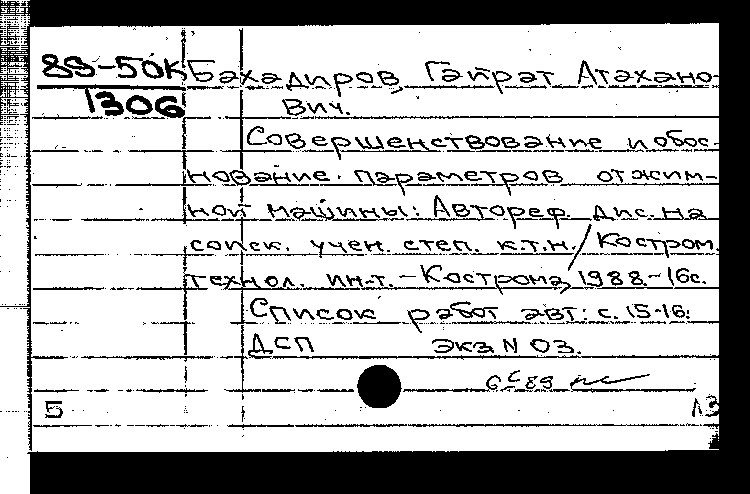 89-50К Бахадиров, Гайрат Атахано-
1306 вич.
Совершенствование и обос-
нование параметров отжим-
ной машины: Автореф. дис. на
соиск. учен. степ. к.т.н. / Костром.
технол. ин-т. - Кострома, 1988. - 16с.
Список работ авт.: с. 15-16.
ДСП экз N 03.
89
5